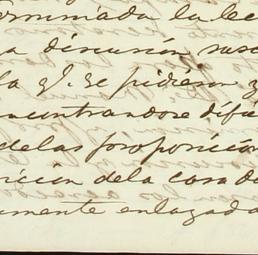 ormináda la lec
a discusión susc
la q.e se pidiera y
ncontrandose difí
delas proposición
ición dela casa d
mente enlazada